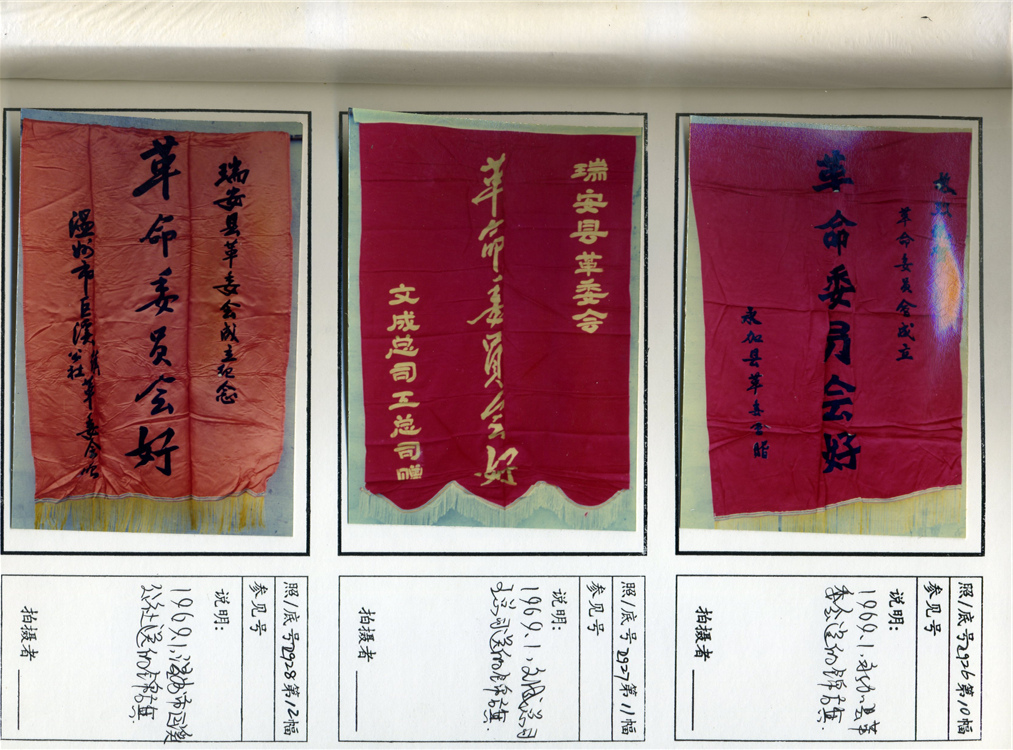 革命委员会成立
革命委员会好
永加县革委会
照/底号2926第10幅
参见号
说明:
1969.1.永加县革
委会送的锦旗.
拍摄者
瑞安县革委会
革命委员会好
文成总司工总司赠
照/底号2927第11幅
参见号
说明:
1969.1.文成总司
工总司送的锦旗.
拍摄者
瑞安县革委会成立纪念
革命委员会好
温州市巨溪公社革委会
照/底号2928第12幅
参见号
说明:
1969.1.温州市巨溪
公社送的锦旗.
拍摄者